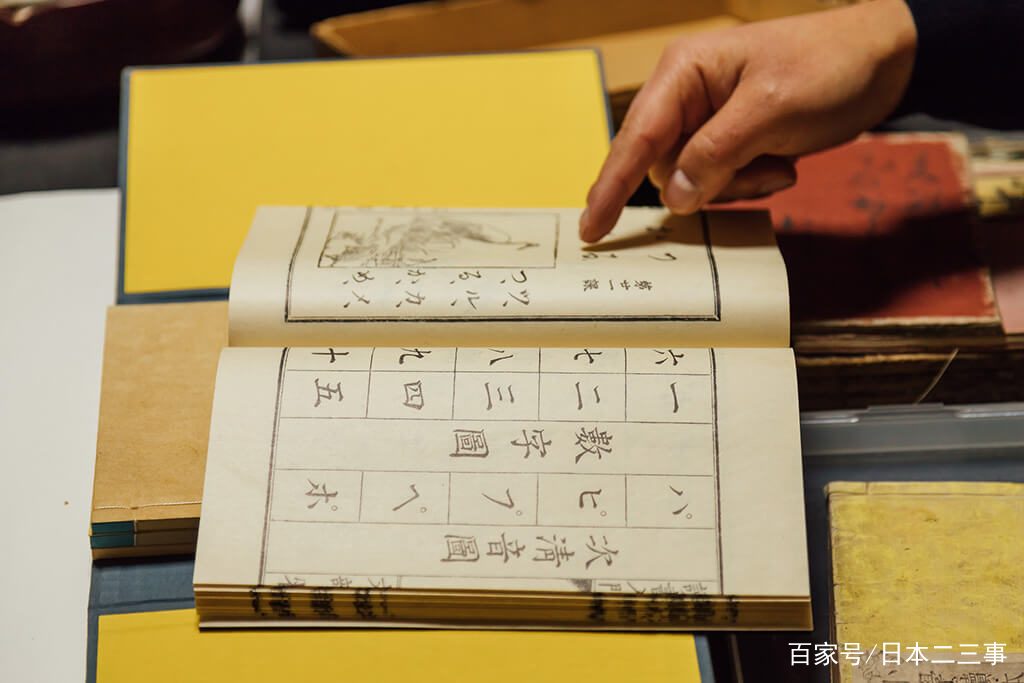 次清音圖
パ ピ プ ペ ポ
數字圖
一 二 三 四 五
六 七 八 九 十
第廿一課
ツ、ル、カ、メ、
つ、る、か、め、
百家号/日本二三事